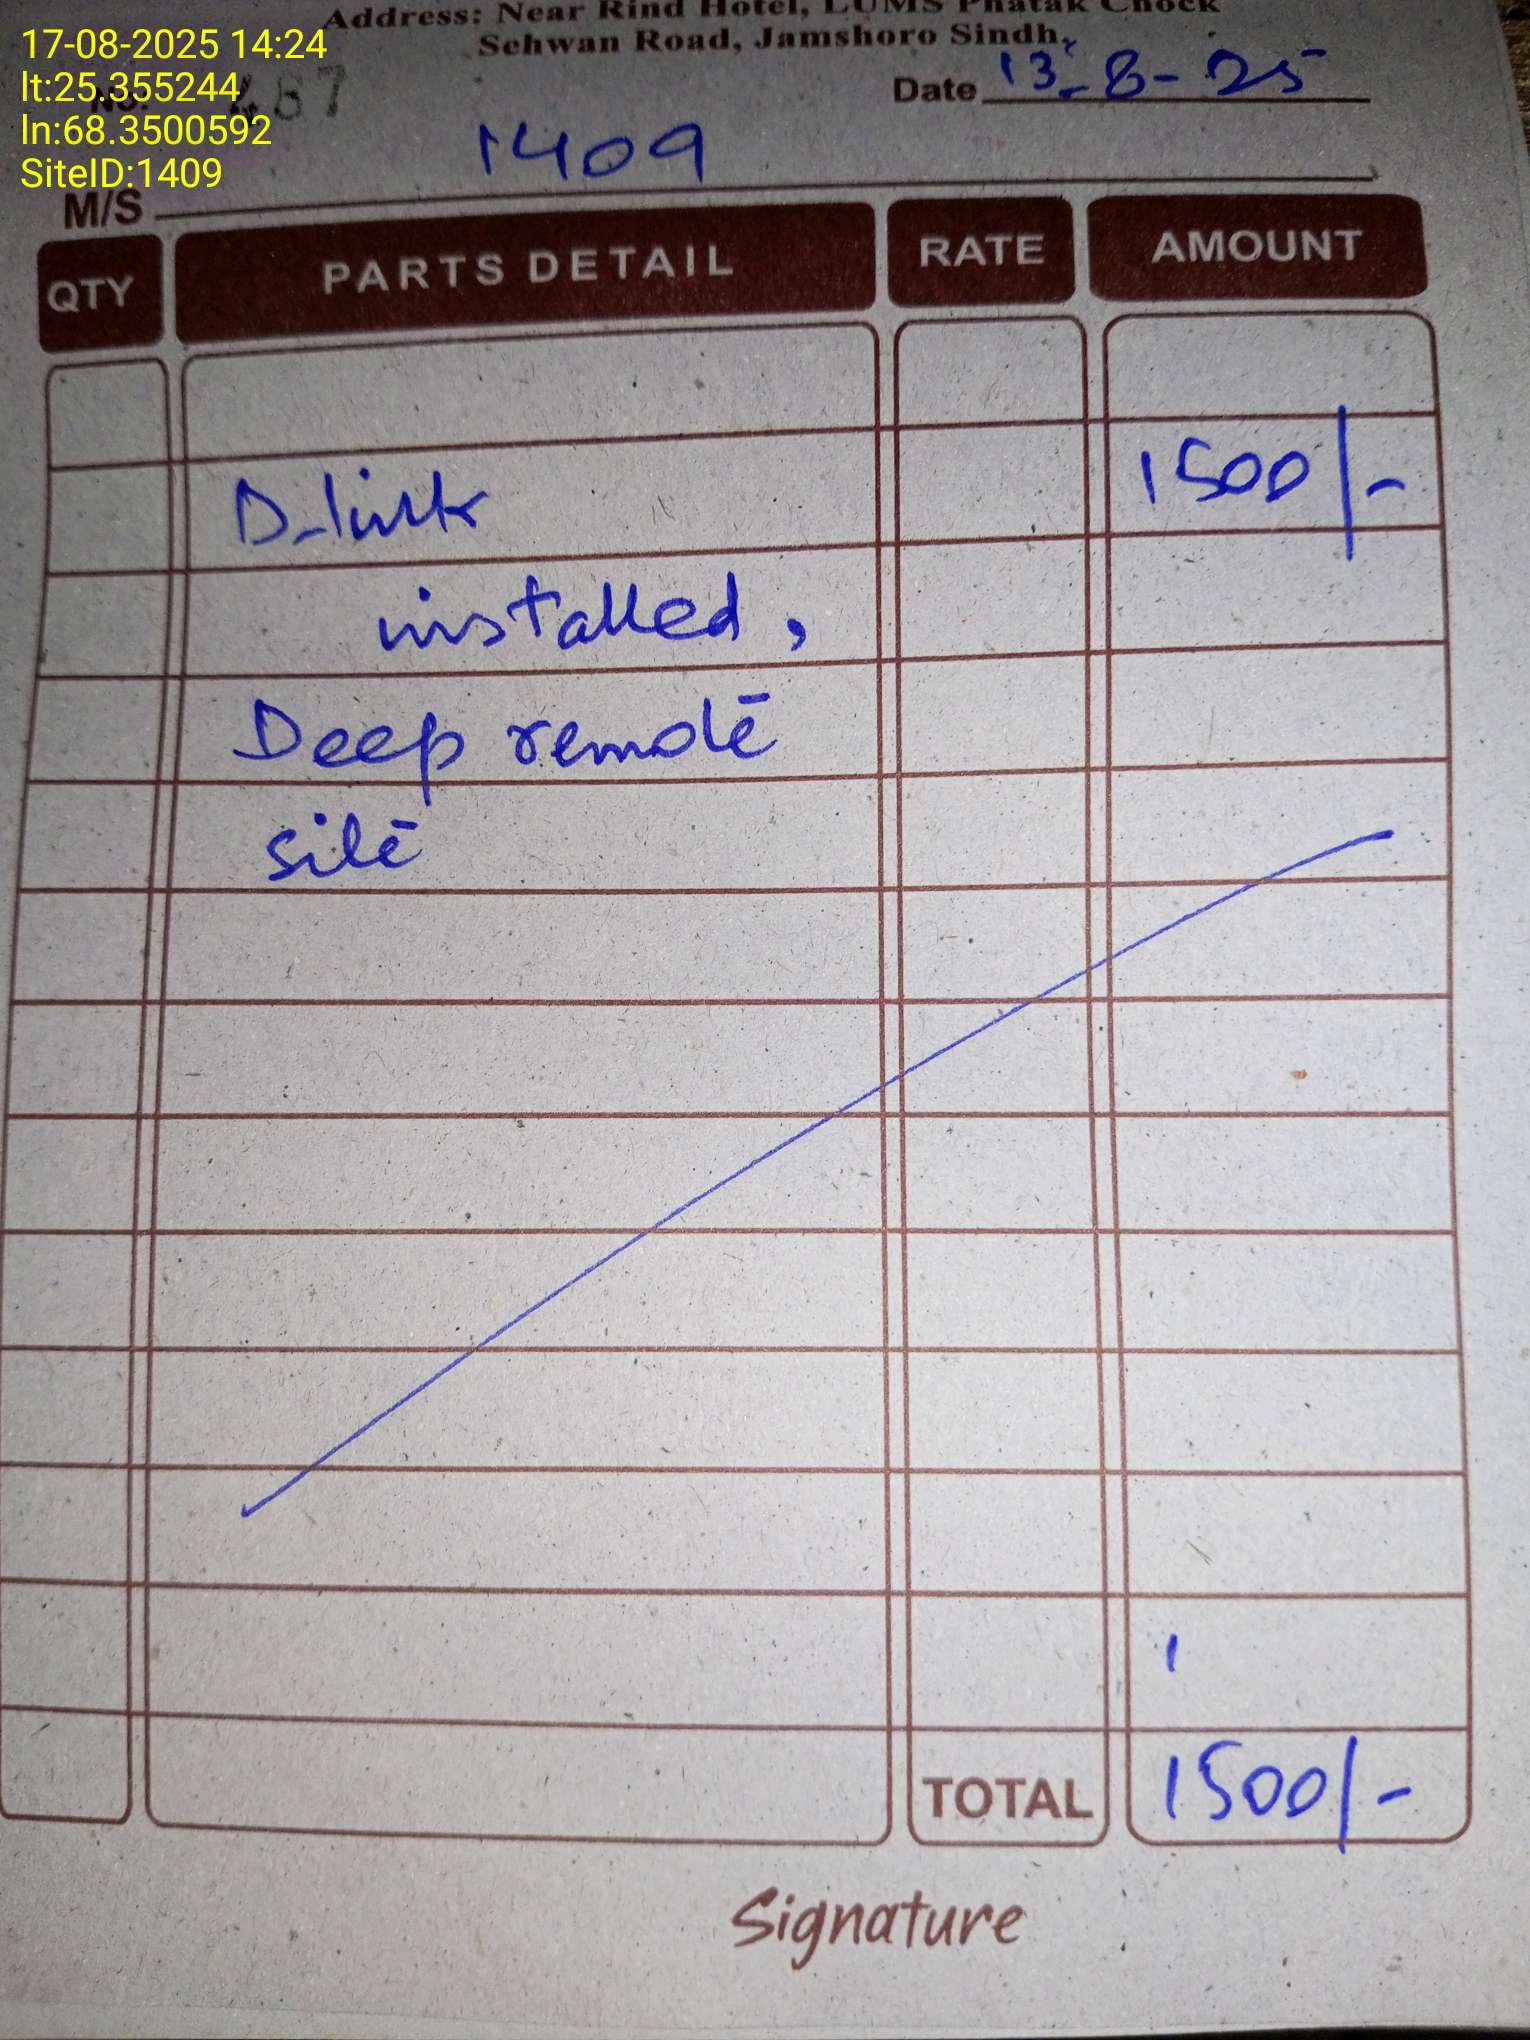 Address: Near Rind Hotel, LUMS Phatak Chock
Sehwan Road, Jamshoro Sindh.
17-08-2025 14:24
lt:25.355244
ln:68.3500592
SiteID:1409
No.
Date 13-8-25
M/S 1409
QTY PARTS DETAIL RATE AMOUNT
D-link 1500/-
installed,
Deep remote
site
TOTAL 1500/-
Signature